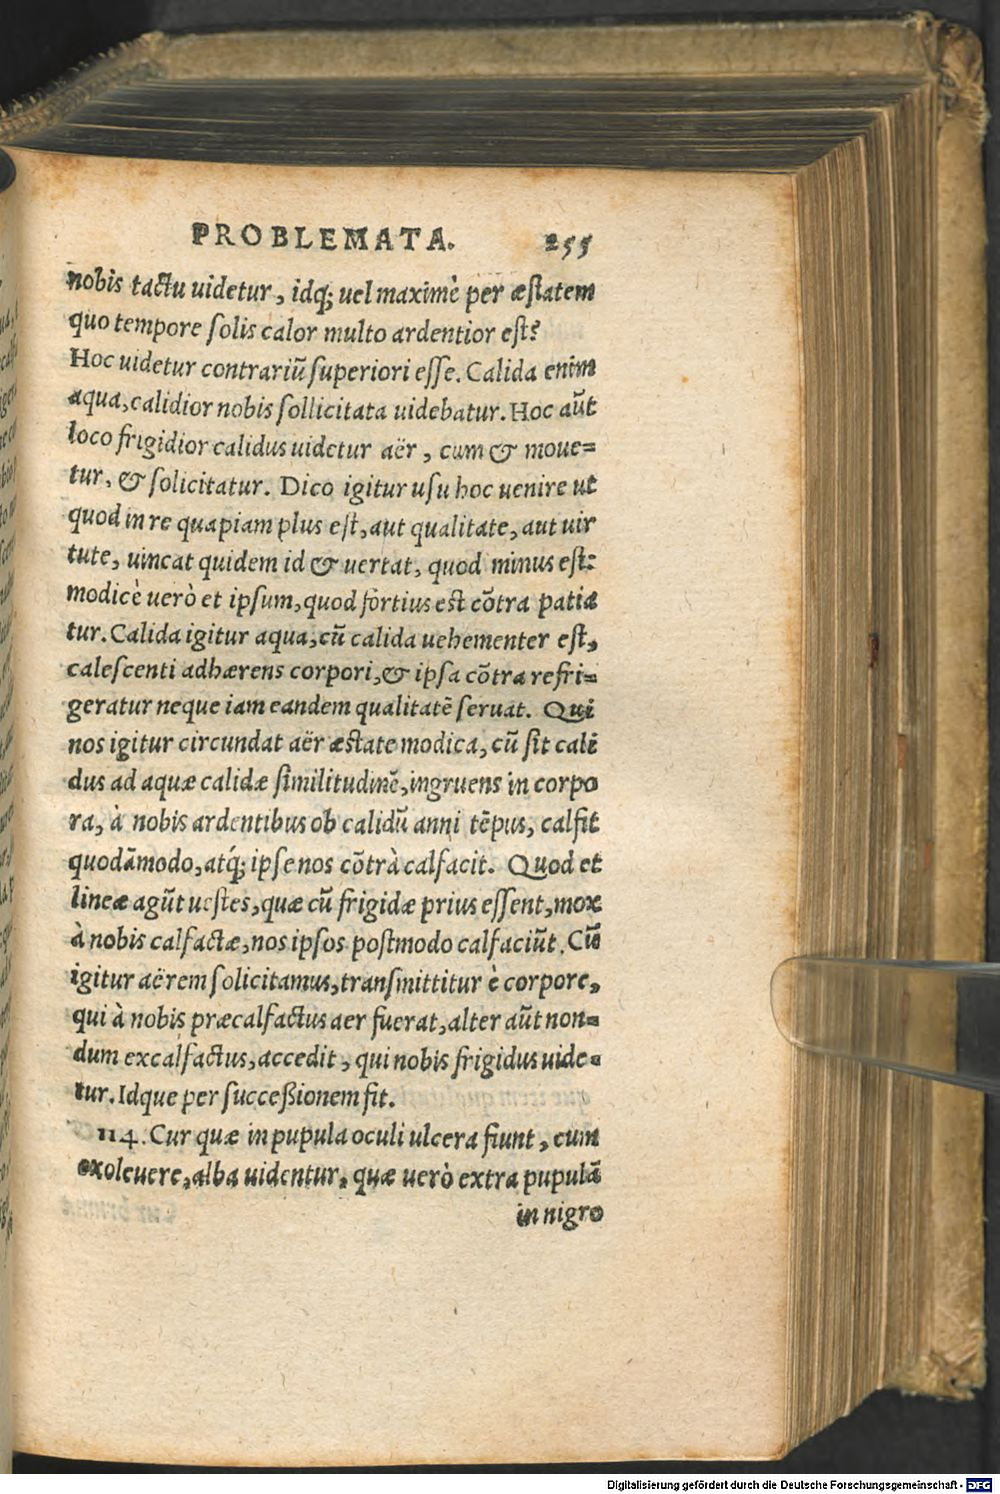 PROBLEMATA. 255
nobis tactu uidetur, idq; uel maximè per æstatem
quo tempore solis calor multo ardentior est?
Hoc uidetur contrariũ superiori esse. Calida enim
aqua, calidior nobis sollicitata uidebatur. Hoc aũt
loco frigidior calidus uidetur aër, cum & moue=
tur, & solicitatur. Dico igitur usu hoc uenire ut
quod in re quapiam plus est, aut qualitate, aut uir
tute, uincat quidem id & uertat, quod minus est:
modicè uerò et ipsum, quod fortius est cõtra patia
tur. Calida igitur aqua, cũ calida uehementer est,
calescenti adhærens corpori, & ipsa cõtra refri=
geratur neque iam eandem qualitatẽ seruat. Qui
nos igitur circundat aër æstate modica, cũ sit cali
dus ad aquæ calidæ similitudinẽ, ingruens in corpo
ra, à nobis ardentibus ob calidũ anni tẽpus, calfit
quodãmodo, atq́; ipse nos cõtrà calfacit. Quod et
lineæ agũt uestes, quæ cũ frigidæ prius essent, mox
à nobis calfactæ, nos ipsos postmodo calfaciũt. Cũ
igitur aërem solicitamus, transmittitur è corpore,
qui à nobis præcalfactus aer fuerat, alter aũt non=
dum excalfactus, accedit, qui nobis frigidus uide=
tur. Idque per succeßionem fit.
114. Cur quæ in pupula oculi ulcera fiunt, cum
exoleuere, alba uidentur, quæ uerò extra pupulã
in nigro
Digitalisierung gefördert durch die Deutsche Forschungsgemeinschaft - DFG